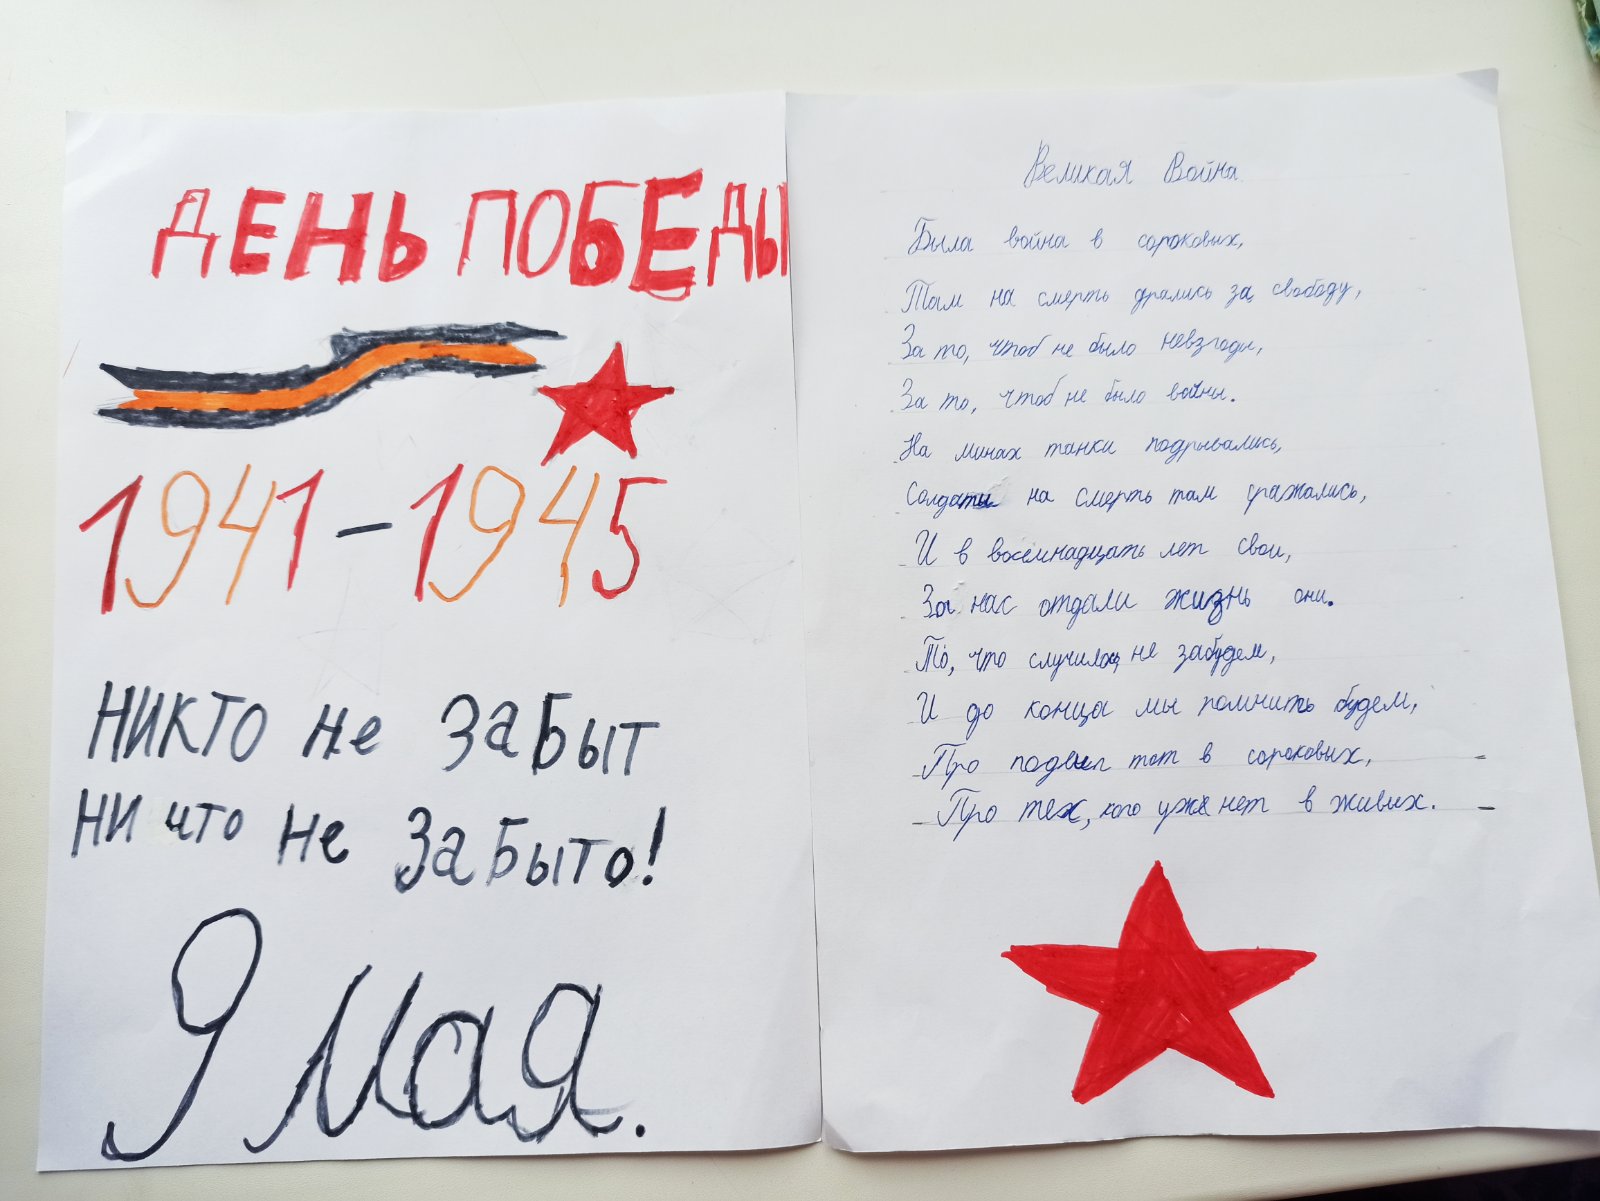 ДЕНЬ ПОБЕДЫ
1941-1945
НИКТО не ЗаБыТ
НИ что не ЗаБыто!
9 мая.
Великая Война
Была война в сороковых,
Там на смерть дрались за свободу,
За то, чтоб не было невзгоды,
За то, чтоб не было войны.
На минах танки подрывались,
Солдаты на смерть там сражались,
И в восемнадцать лет свои,
За нас отдали жизнь они.
То, что случилось, не забудем,
И до конца мы помнить будем,
Про подвиг тот в сороковых,
Про тех, кого уже нет в живых.